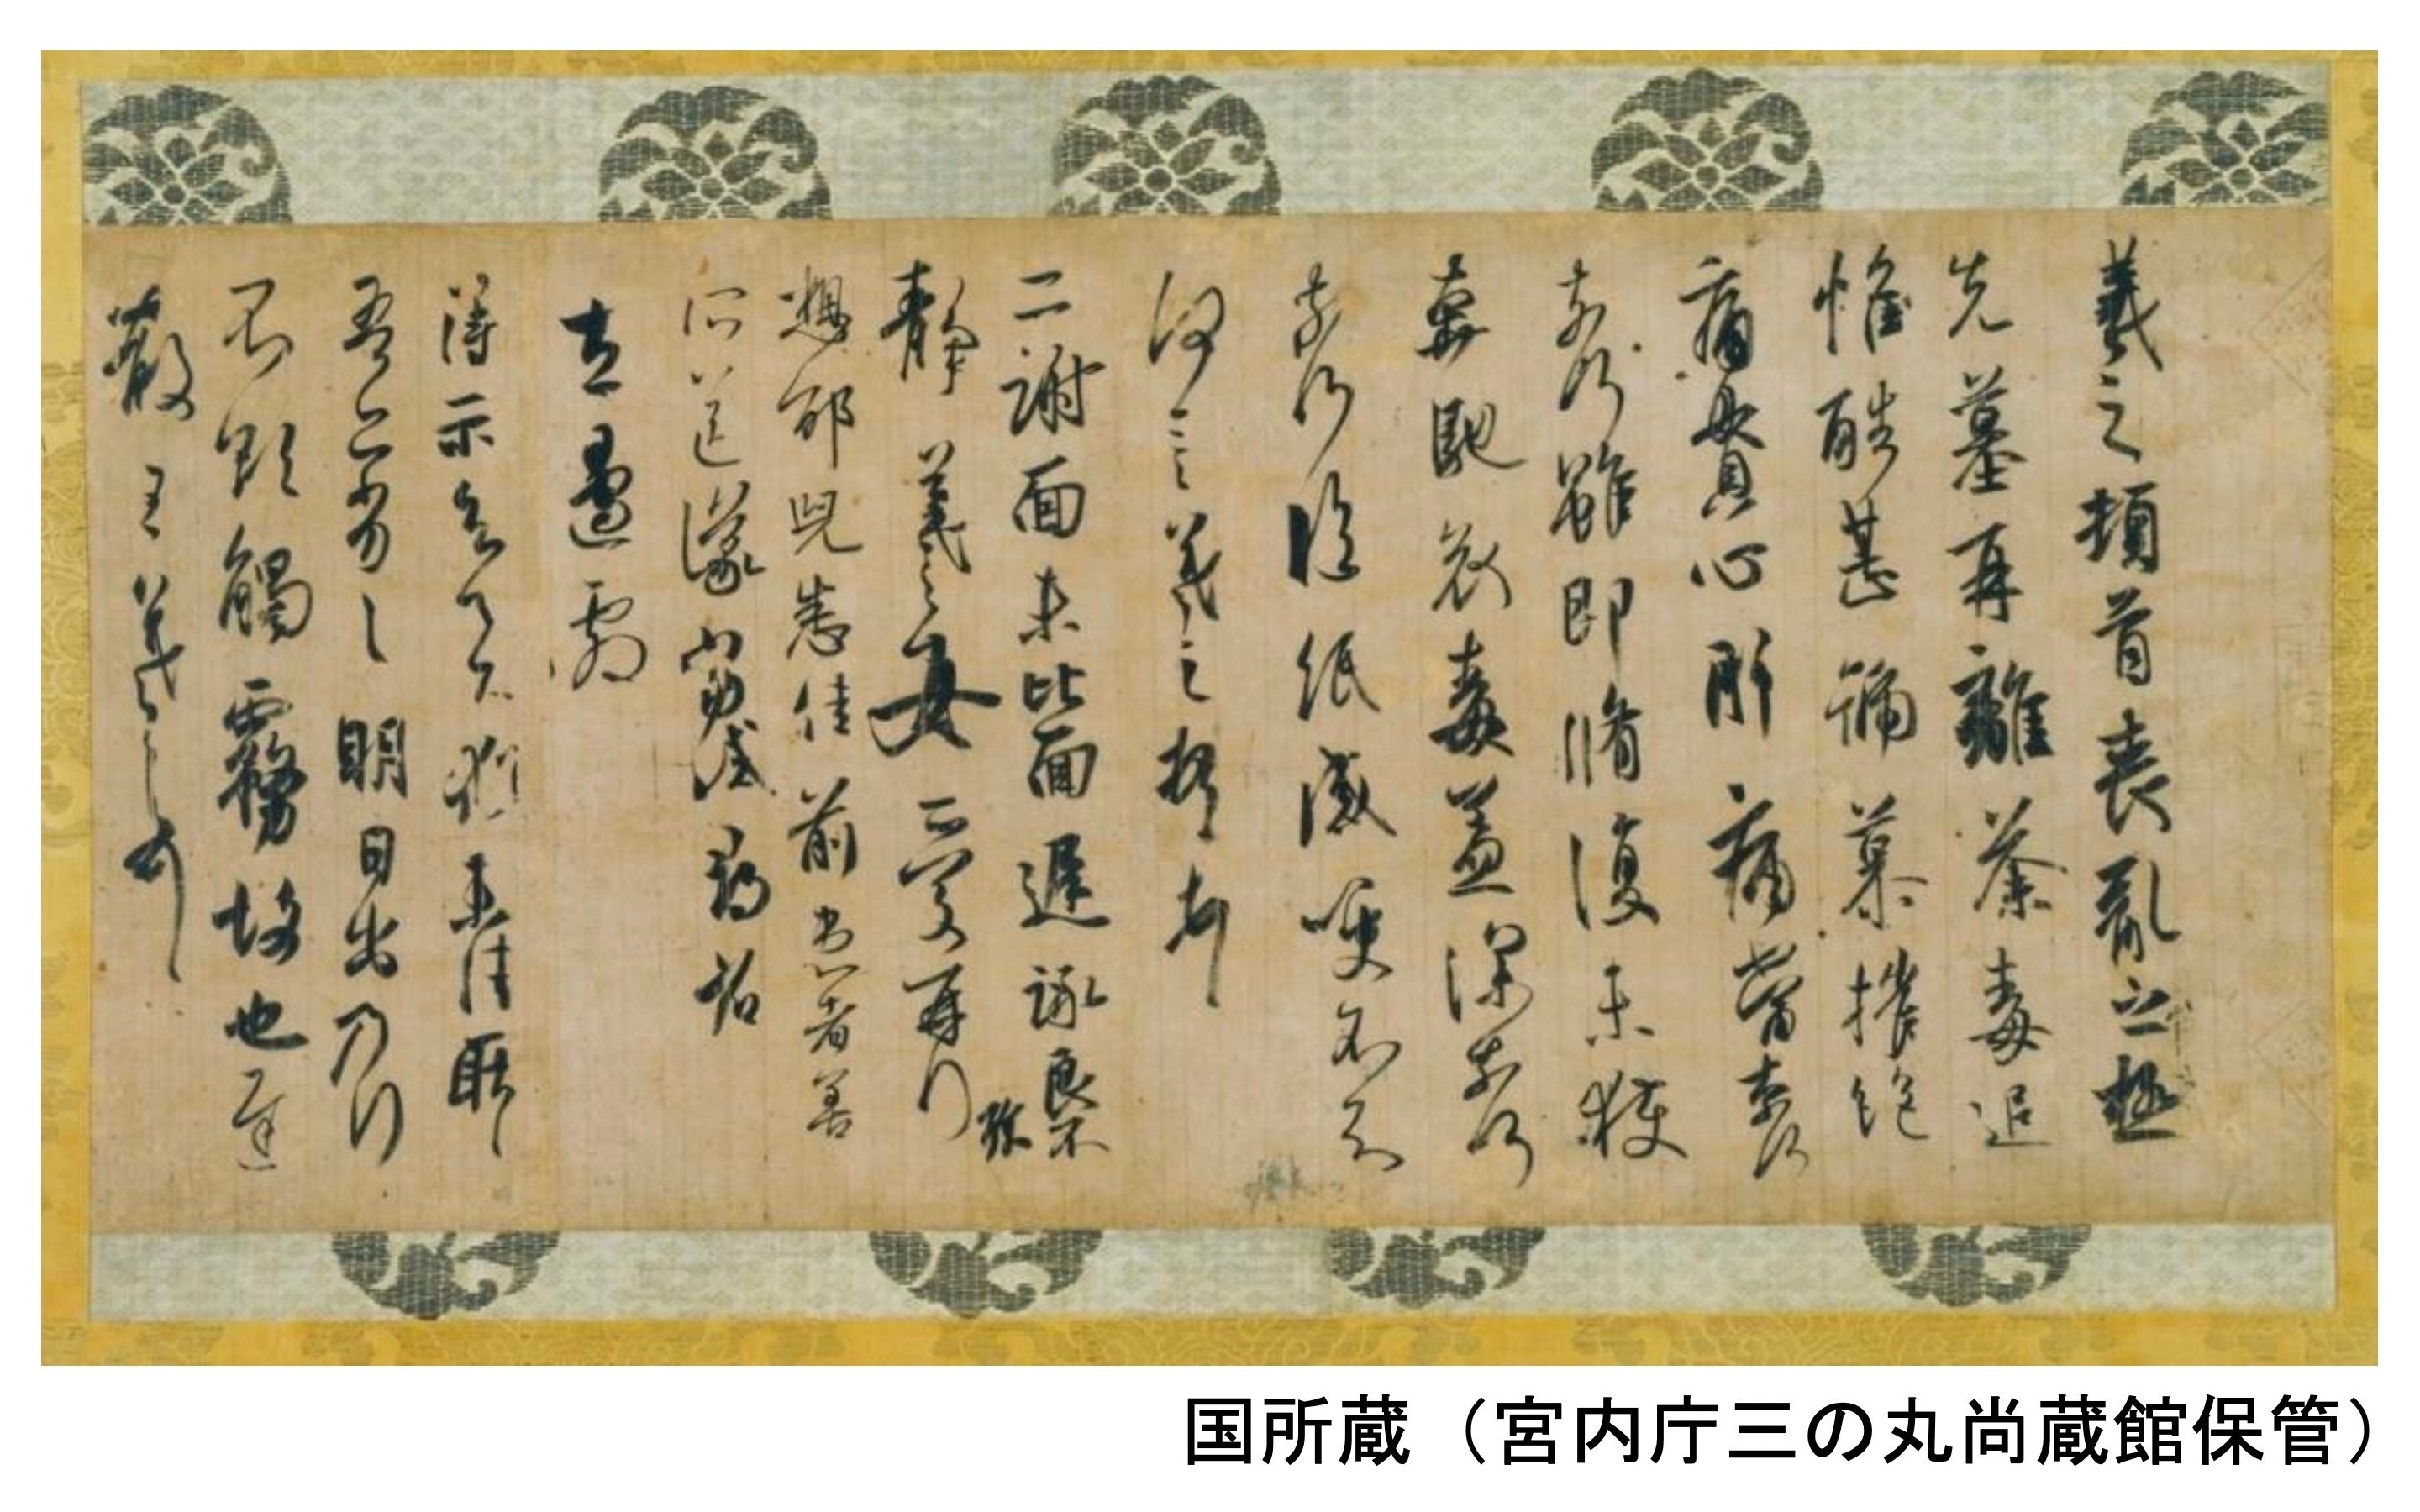 羲之頓首喪亂之極
先墓再離荼毒追
惟酷甚號慕摧絶
痛貫心肝痛當奈何
奈何雖即脩復未獲
奔馳哀毒益深奈何
奈何臨紙感哽不知
何言羲之頓首頓首
二謝面未比面遲詠良不
靜羲之女愛再拜
想邰兒悉佳前患者善
所送議當試尋省
左邊劇
得示知足下猶未佳耿耿
吾亦劣劣明日出乃行
不欲觸霧故也遲
散王羲之頓首
国所蔵（宮内庁三の丸尚蔵館保管）